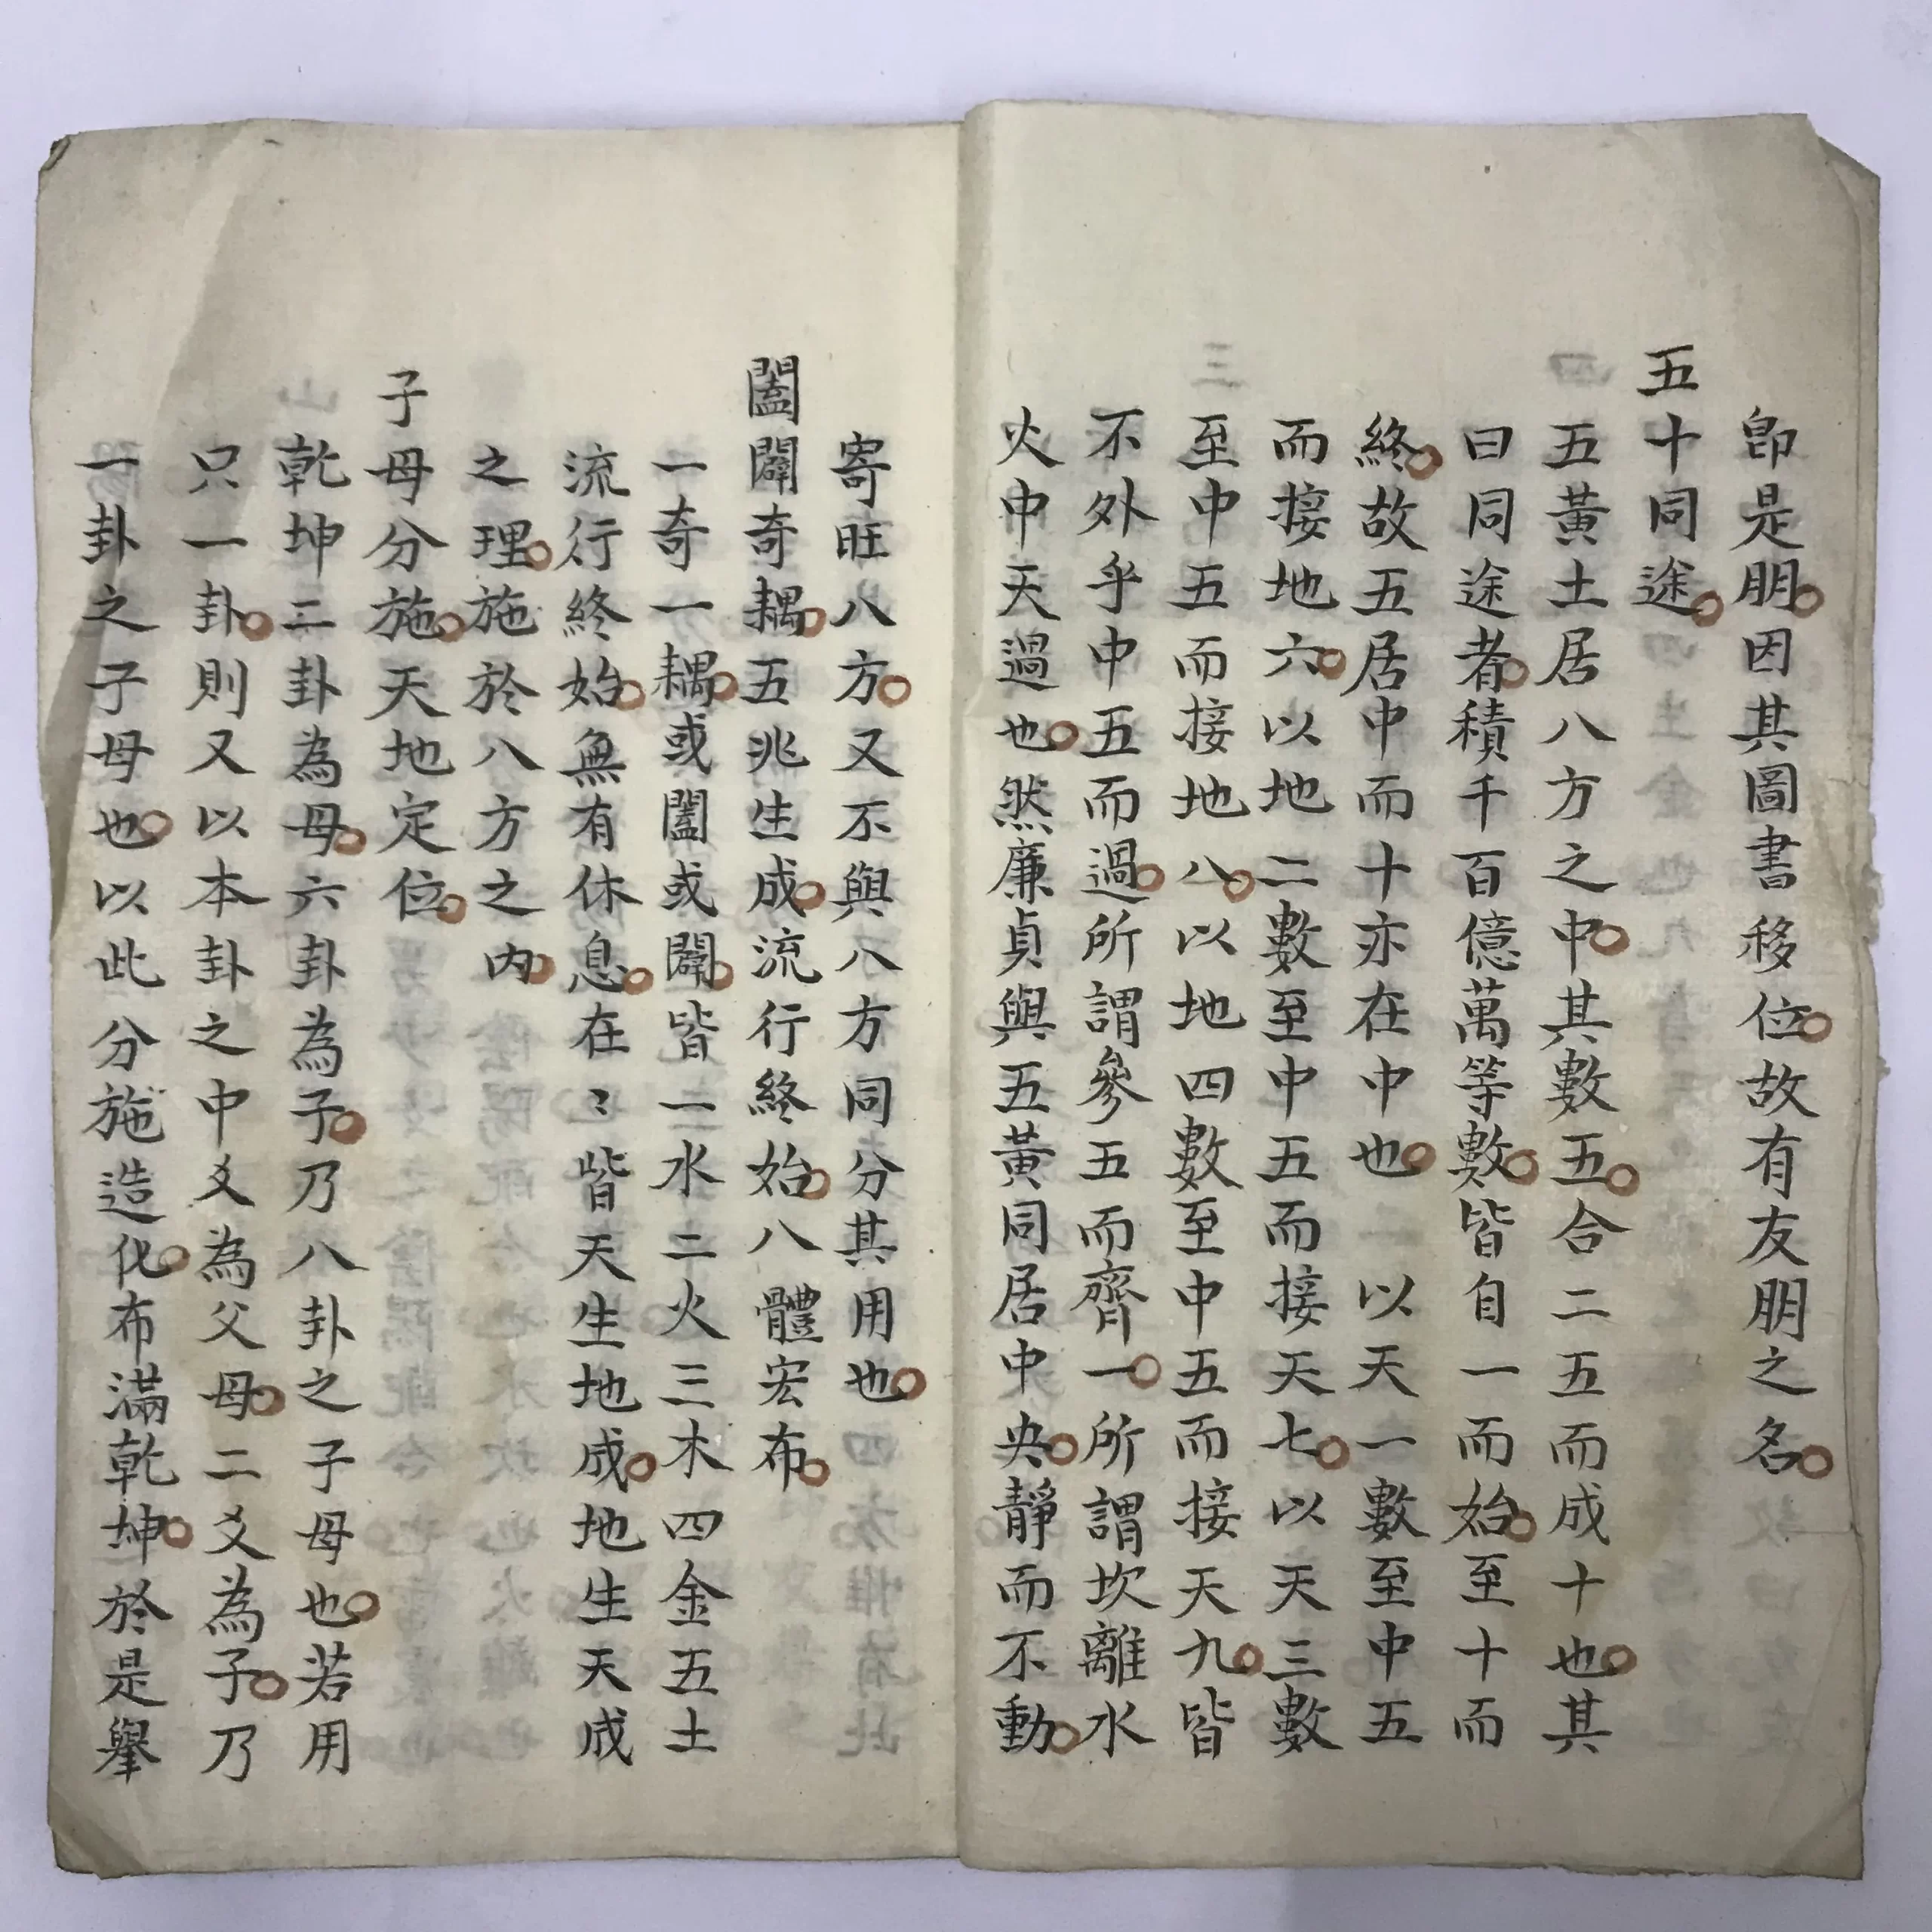 卽是朋因其圖書移位故有友朋之名
五十同途
五黃土居八方之中其數五合二五而成十也其
曰同途者積千百億萬等數皆自一而始至十而
終故五居中而十亦在中也以天一數至中五
而接地六以地二數至中五而接天七以天三數
至中五而接地八以地四數至中五而接天九皆
不外乎中五而過所謂參五而齊一所謂坎離水
火中天過也然廉貞與五黃同居中央靜而不動
寄旺八方又不與八方同分其用也
闔闢奇耦五兆生成流行終始八體宏布
一奇一耦或闔或闢皆一水二火三木四金五土
流行終始無有休息在〻皆天生地成地生天成
之理施於八方之內
子母分施天地定位
乾坤二卦為母六卦為子乃八卦之子母也若用
只一卦則又以本卦之中爻為父母二爻為子乃
一卦之子母也以此分施造化布滿乾坤於是舉